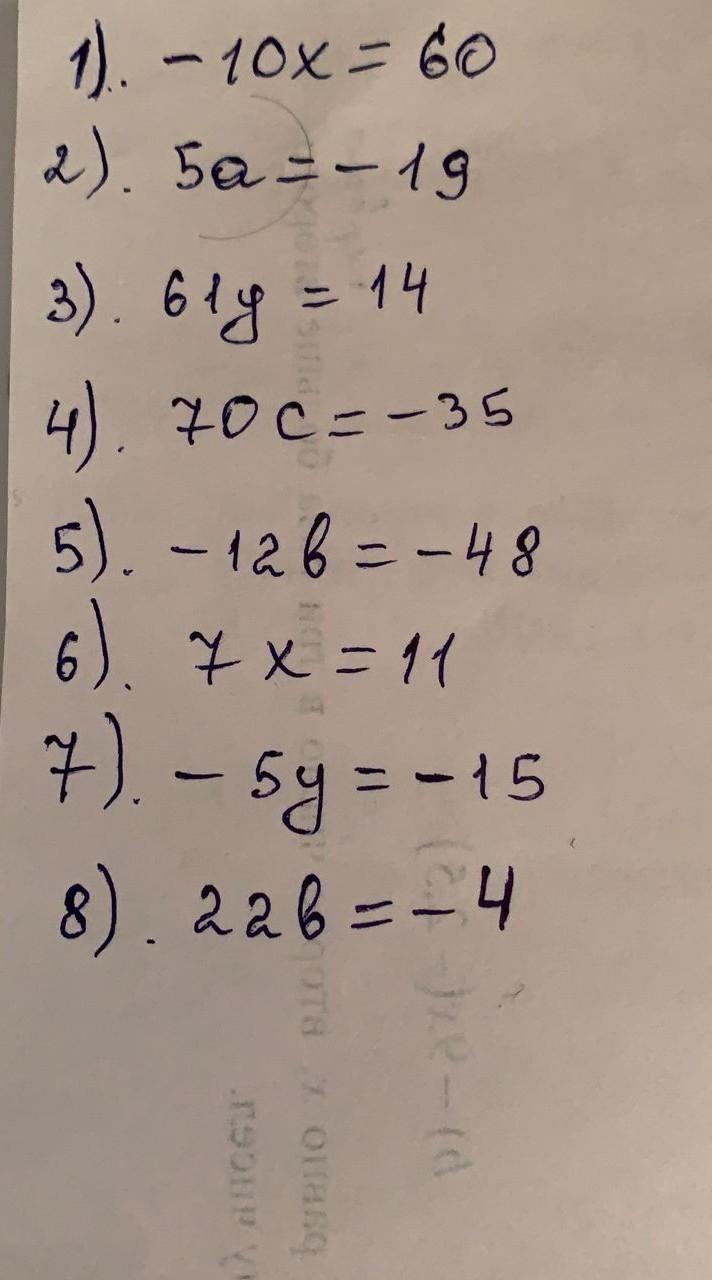 1). -10x = 60
2). 5a = -19
3). 61y = 14
4). 70c = -35
5). -12b = -48
6). 7x = 11
7). -5y = -15
8). 22b = -4